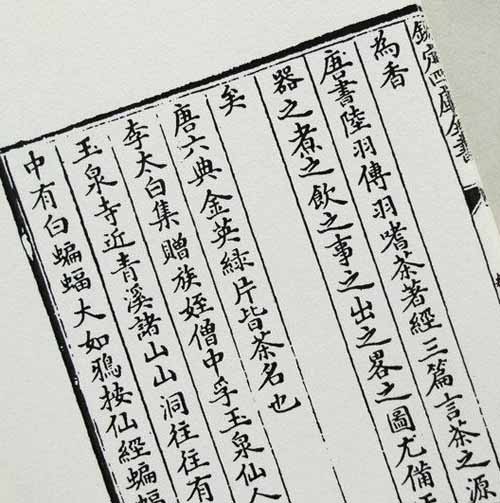 欽定四庫全書
為香
唐書陸羽傳羽嗜茶著經三篇言茶之源
器之煮之飲之事之出之畧之圖尤備
矣
唐六典金英緑片皆茶名也
李太白集贈族姪僧中孚玉泉仙人
玉泉寺近青溪諸山山洞往往有
中有白蝙蝠大如鴉按仙經蝙蝠